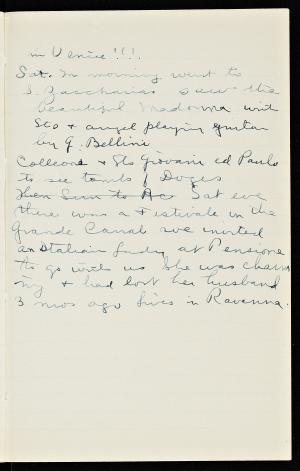 in Venice!!!.
Sat. In morning went to
S. Zaccharias saw the
beautiful Madonna with
Sts & angel playing guitar
by G. Bellini
Colleoni & Sts Giovani ed Paulo
to see tombs of Doges
then Sat eve
there was a Festivale in the
Grande Canal we invited
an Italian lady at Pensione
to go with us She was charm
ing & had lost her husband
3 mos ago lives in Ravenna.